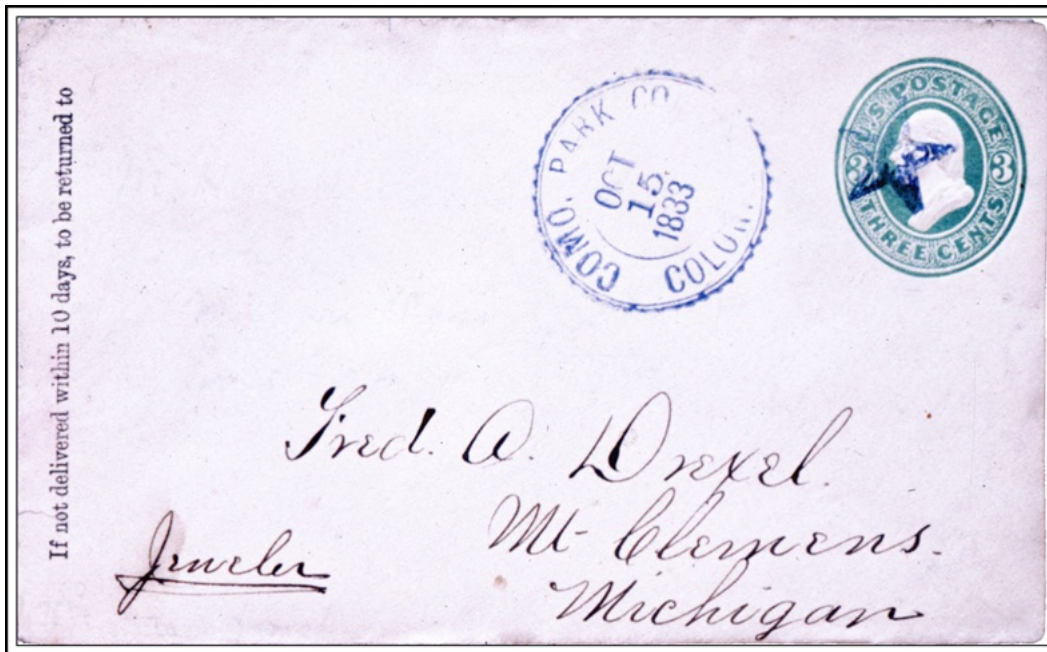 If not delivered within 10 days, to be returned to
COMO, PARK CO.
OCT
15
1833
U.S. POSTAGE
3 3
THREE CENTS
Fred. A. Drexel.
Mt Clemens.
Michigan
Jeweler